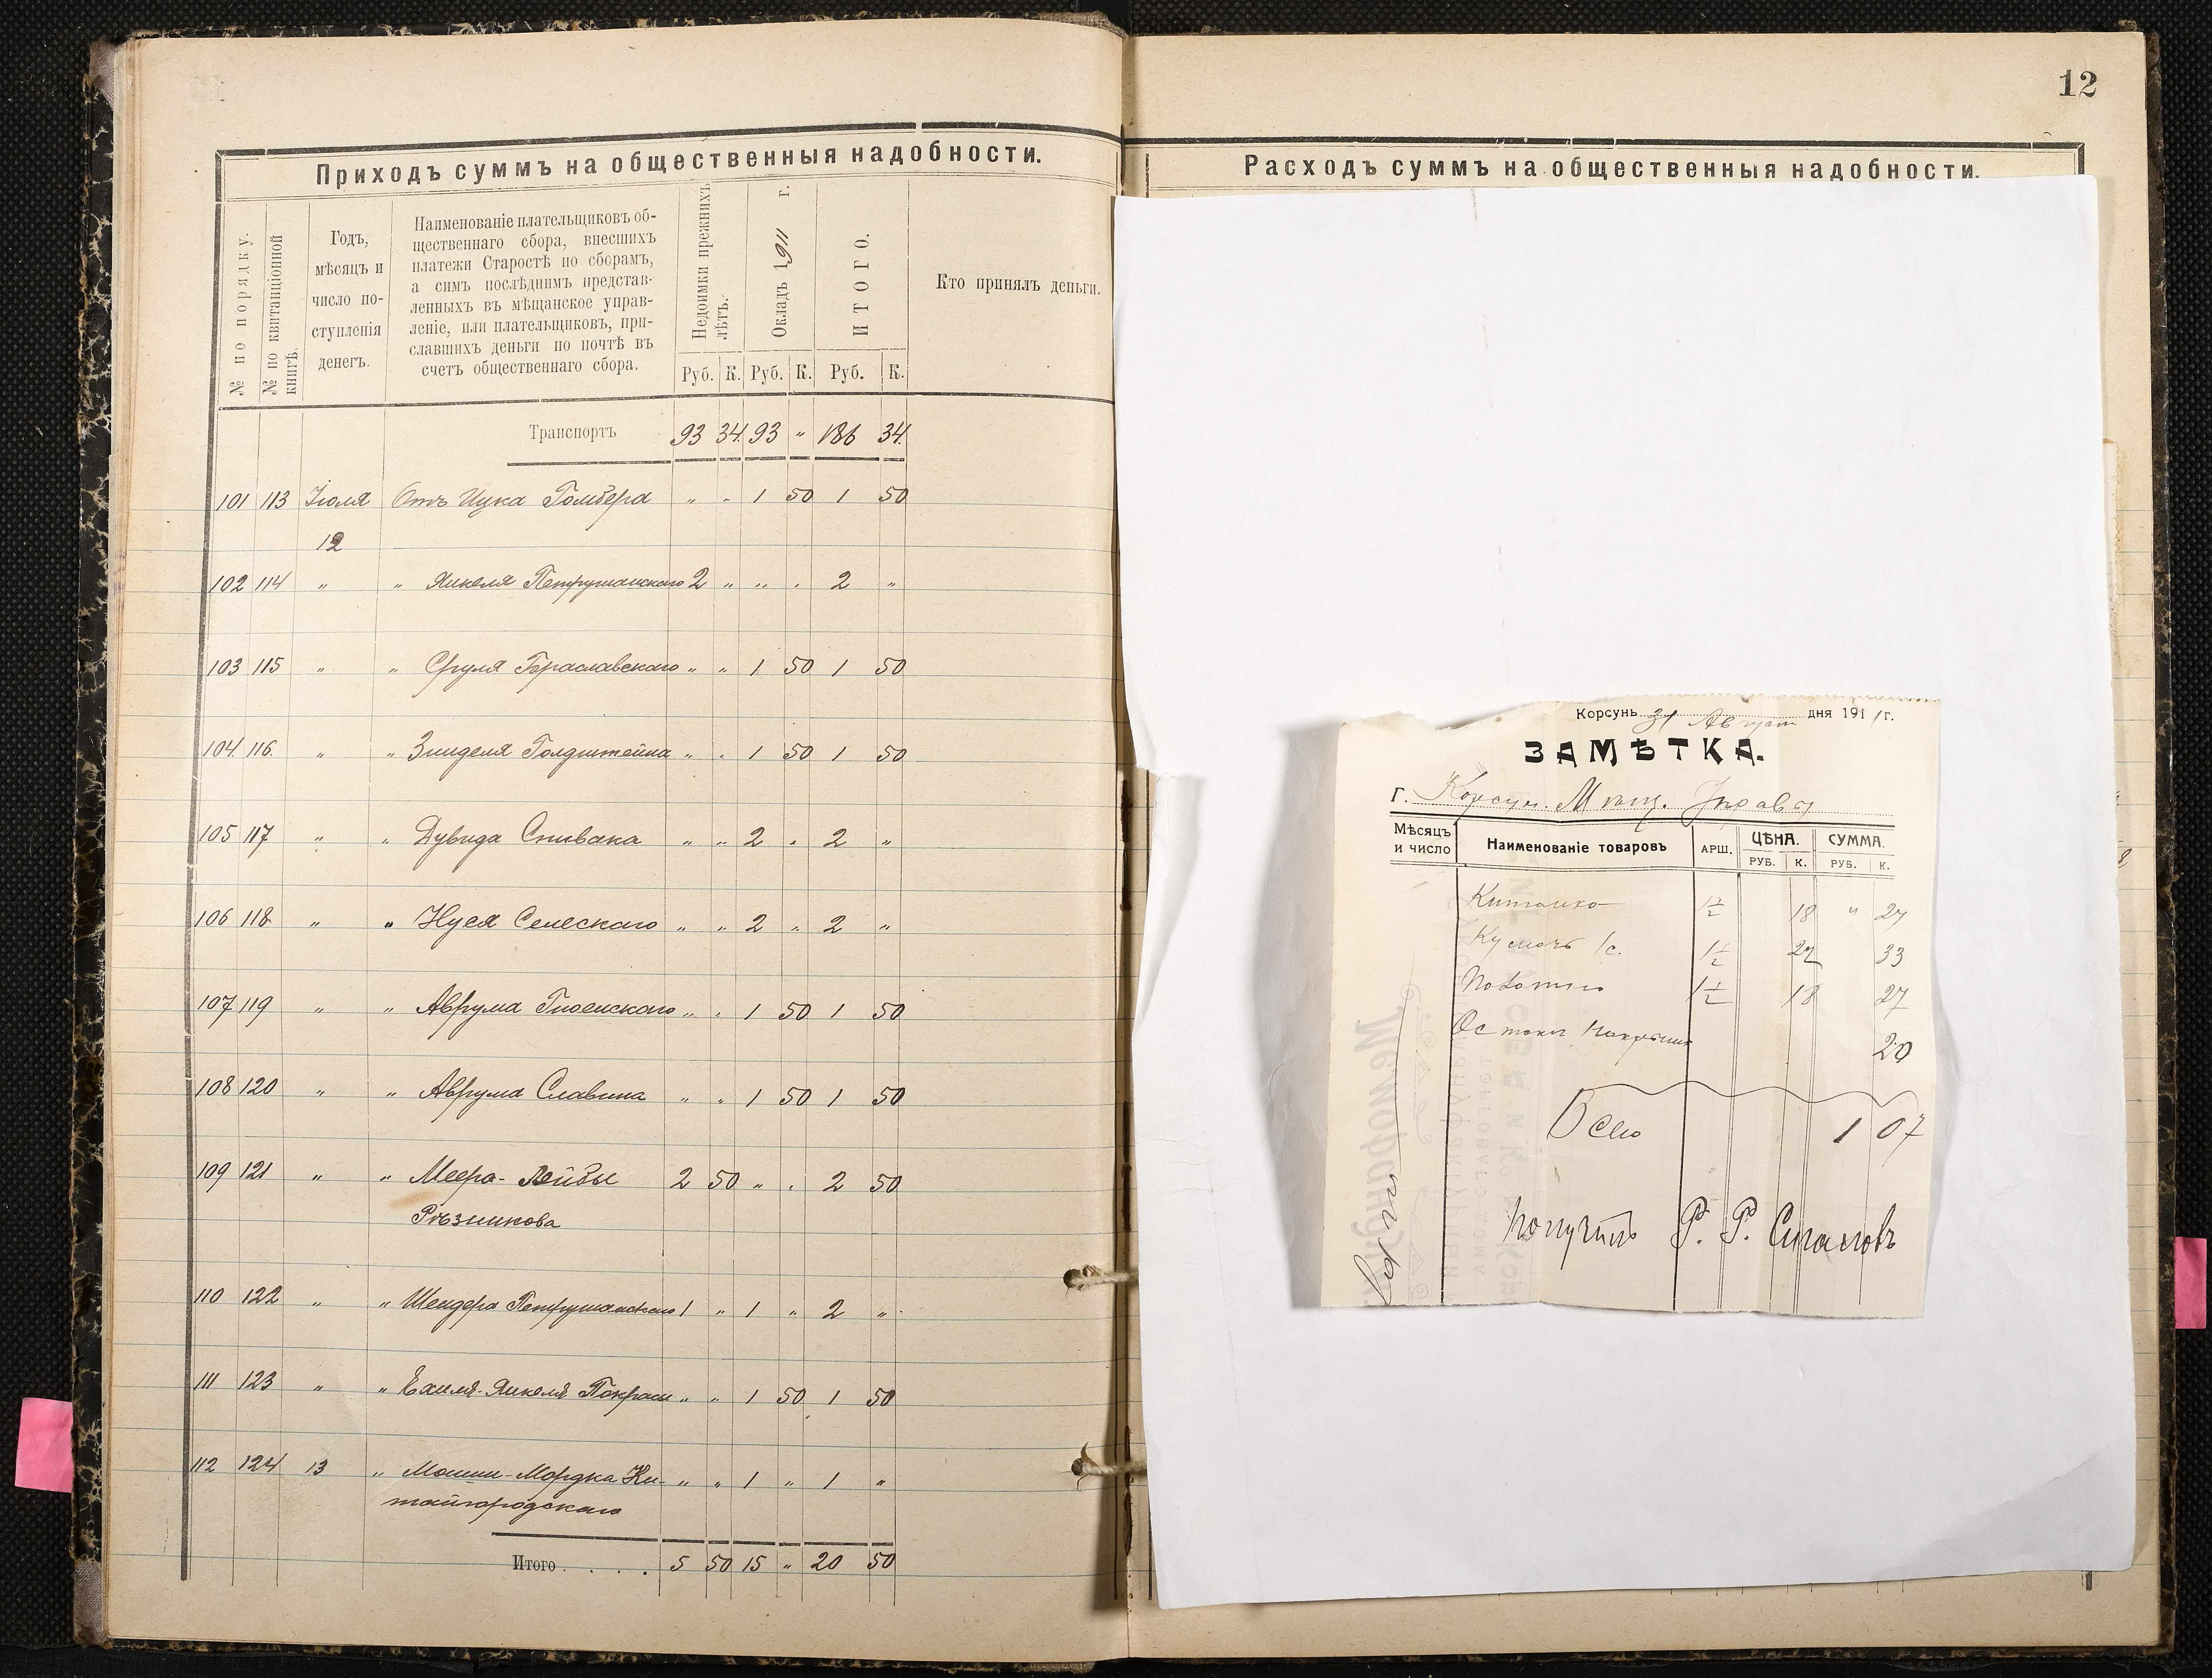 12
Приходъ суммъ на общественныя надобности.
№ по порядку.
№ по квитанціонной книгѣ.
Годъ,
мѣсяцъ и
число по-
ступленія
денегъ.
Наименованіе плательщиковъ об-
щественнаго сбора, внесшихъ
платежи Старостѣ по сборамъ,
а симъ послѣднимъ представ-
ленныхъ въ мѣщанское управ-
леніе, или плательщиковъ, при-
славшихъ деньги по почтѣ въ
счетъ общественнаго сбора.
Недоимки прежнихъ лѣтъ.
Окладъ 1911 г.
ИТОГО.
Кто принялъ деньги.
Руб. К. Руб. К. Руб. К.
Транспортъ 93 34 93 " 186 34
101 113 Іюля Отъ Ицка Гомбера " " 1 50 1 50
12
102 114 " " Янкеля Петрушанскаго 2 " " " 2 "
103 115 " " Сруля Бораславскаго " " 1 50 1 50
104. 116. " " Зинделя Голдштейна " " 1 50 1 50
105 117 " " Дувида Спивака " " 2 " 2 "
106 118 " " Нуся Селескаго " " 2 " 2 "
107 119 " " Аврума " " 1 50 1 50
108 120 " " Аврума Славина " " 1 50 1 50
109 121 " " Меера-Лейбы 2 50 " " 2 50
Рѣзникова
110 122 " " Шендера Петрушанскаго 1 " 1 " 2 "
111 123 " " Ехиля-Янкеля Покрасы " " 1 50 1 50
112 124 13 " Мошки-Мордка Ки- " " 1 " 1 "
тайгородскаго
Итого . . . . 5 50 15 " 20 50
Расходъ суммъ на общественныя надобности.
Корсунь 31 Август дня 1911 г.
ЗАМѢТКА.
Г. Корсун. Мѣщ. Управы
Мѣсяцъ и число
Наименованіе товаровъ
АРШ.
ЦѢНА.
СУММА.
РУБ. К. РУБ. К.
Китайка 1½ 18 " 27
Кумачъ 1с. 1½ 22 33
1½ 18 27
20
Всего 1 07
Получилъ Р. Р.